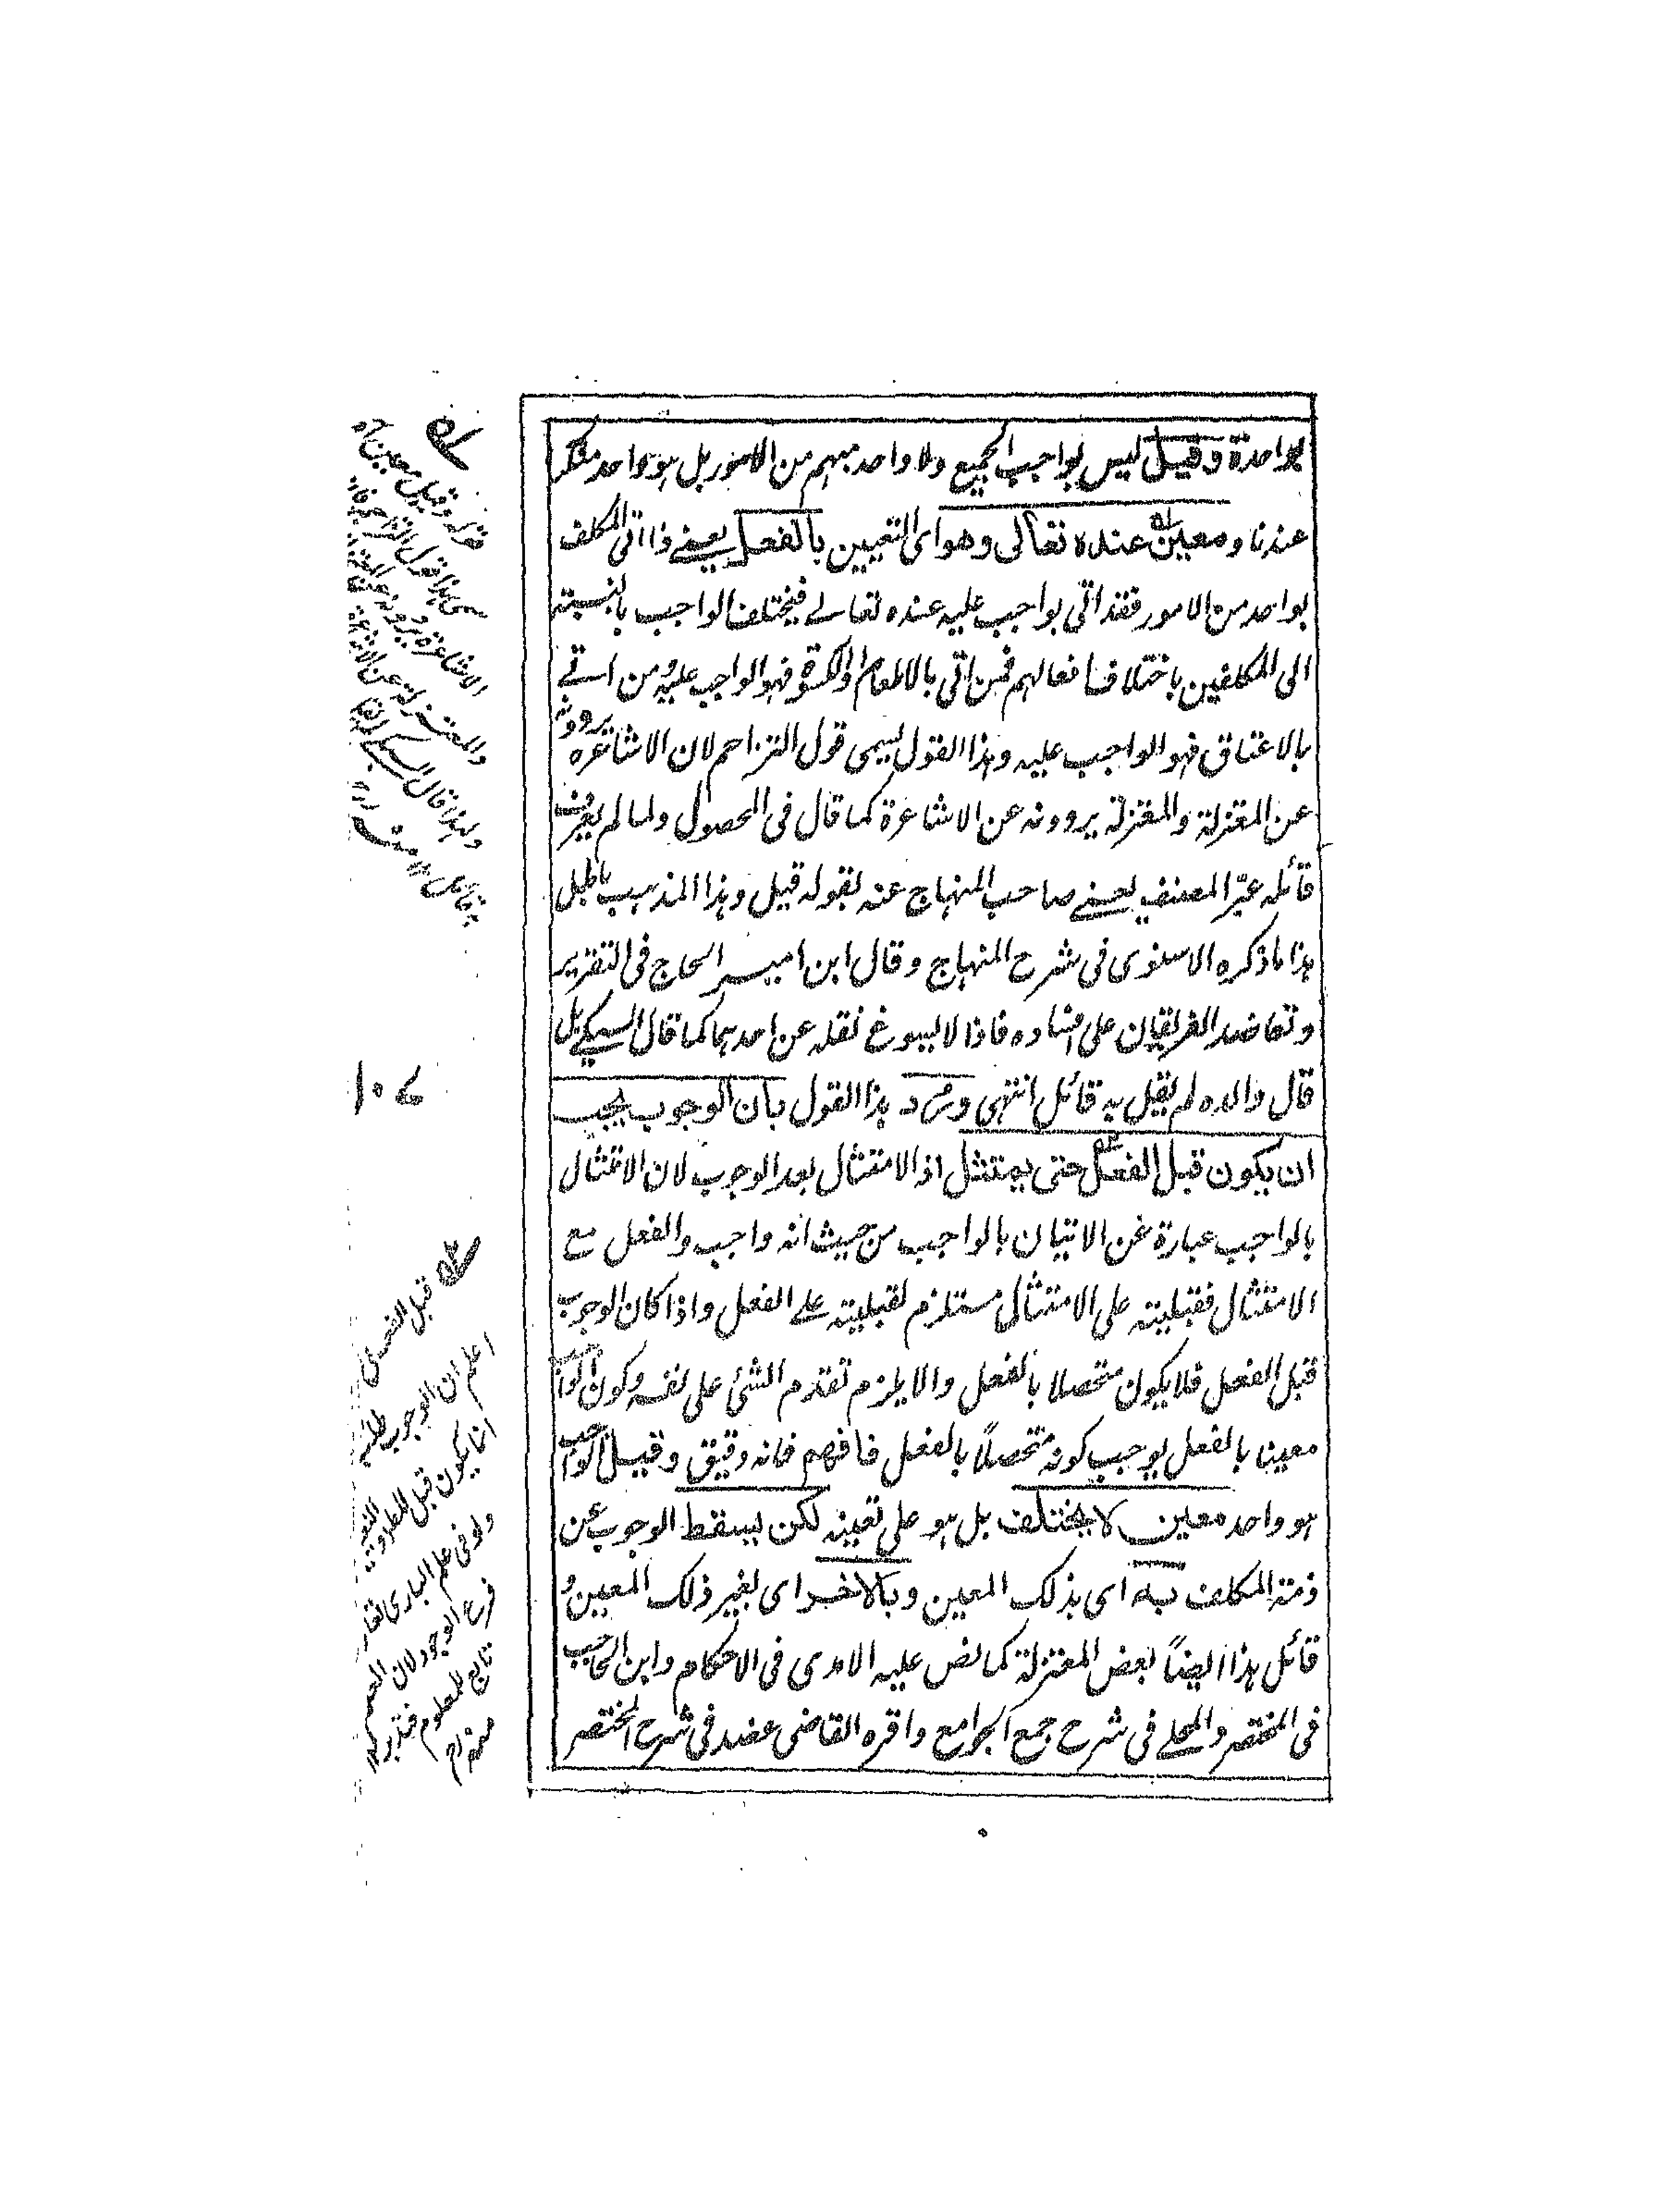 بواحدة وقيل ليس بواجب الجميع ولا واحد مبهم من الامور بل هو واحد منكر
عندنا ومعين عنده تعالى وهو اى التعيين بالفعل يعنے فاذا اتى المكلف
بواحد من الامور فقد اتى بواجب عليه عنده تعالے فيختلف الواجب بالنسبته
الى المكلفين باختلاف افعالهم فمن اتى بالاطعام او الكسوة فهو الواجب عليه و من اتے
بالاعتاق فهو الواجب عليه وهذا القول يسمى قول التزاحم لان الاشاعرة يروونه
عن المعتزلة والمعتزلة يروونه عن الاشاعرة كما قال فى المحصول ولما لم يعرف
قائله عبّر المصنف يعنے صاحب المنهاج عنه بقوله قيل وهذا المذهب باطل
هذا ما ذكره الاسنوى فى شرح المنهاج وقال ابن امير الحاج فى التقرير
وتعاضد الفريقان على فساده فاذا لا يسوغ نقله عن احدهما كما قال السبكے بل
قال والده لم يقل به قائل انتهى ورد هذا القول بان الوجوب يجب
ان يكون قبل الفعل حتى يمتثل اذ الامتثال بعد الوجوب لان الامتثال
بالواجب عبارة عن الاتيان بالواجب من حيث انه واجب والفعل مع
الامتثال فقبليته على الامتثال مستلزم لقبليته علے الفعل واذا كان الوجوب
قبل الفعل فلا يكون متحصلا بالفعل والا يلزم تقدم الشئ على نفسه وكون الواجب
معينا بالفعل يوجب كونه متحصلاً بالفعل فافهم فانه دقيق وقيل الواجب
هو واحد معين لا يختلف بل هو على تعينه لكن يسقط الوجوب عن
ذمة المكلف به اى بذلك المعين وبالاخر اى بغير ذلك المعين و
قائل هذا ايضاً بعض المعتزلة كما نص عليه الامدى فى الاحكام وابن الحاجب
فى المختصر والمحلے فى شرح جمع الجوامع واقره القاضى عضد فى شرح المختصر
قوله وقيل معين
الاشاعرة يروونه عن
والمعتزلة عن الاشاعرة
ولهذا قال السبكے
قائل ١٢ منه
١٠٧
قبل الفعل
اعلم ان الوجوب
انما يكون قبل
ولو فى علم البارى تعالى
فرع الوجود لان العلم
تابع للمعلوم فتدبر ١٢
منه رح